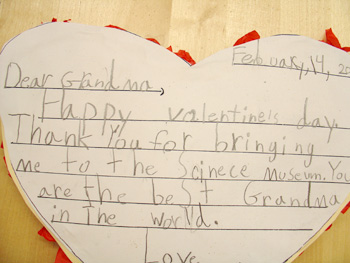 February, 14, 
Dear Grandma,
Happy valentine's day.
Thank You for bringing
me to the Scinece museum. You
are the best Grandma
in The world.
Love